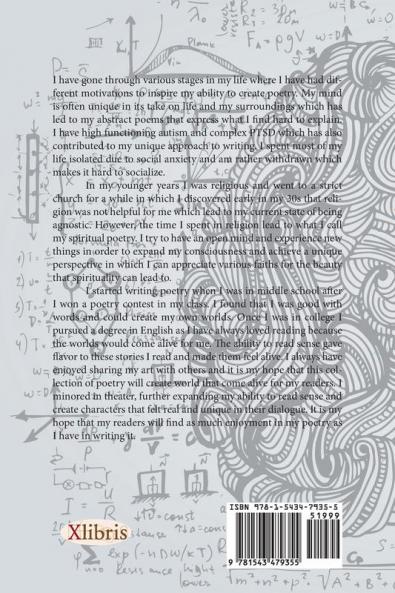 I have gone through various stages in my life where I have had dif-
ferent motivations to inspire my ability to create poetry. My mind
is often unique in its take on life and my surroundings which has
led to my abstract poems that express what I find hard to explain.
I have high functioning autism and complex PTSD which has also
contributed to my unique approach to writing. I spent most of my
life isolated due to social anxiety and am rather withdrawn which
makes it hard to socialize.
In my younger years I was religious and went to a strict
church for a while in which I discovered early in my 30s that reli-
gion was not helpful for me which lead to my current state of being
agnostic. However, the time I spent in religion lead to what I call
my spiritual poetry. I try to have an open mind and experience new
things in order to expand my consciousness and achieve a unique
perspective in which I can appreciate various faiths for the beauty
that spirituality can lead to.
I started writing poetry when I was in middle school after
I won a poetry contest in my class. I found that I was good with
words and could create my own worlds. Once I was in college I
pursued a degree in English as I have always loved reading because
the worlds would come alive for me. The ability to read sense gave
flavor to these stories I read and made them feel alive. I always have
enjoyed sharing my art with others and it is my hope that this col-
lection of poetry will create world that come alive for my readers. I
minored in theater, further expanding my ability to read sense and
create characters that felt real and unique in their dialogue. It is my
hope that my readers will find as much enjoyment in my poetry as
I have in writing it.
Plank
Xlibris
ISBN 978-1-5434-7935-5
51999
9 781543 479355